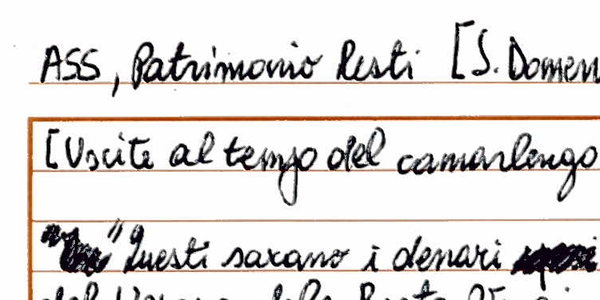 ASS, Patrimonio Resti [S. Domen
[Uscite al tempo del camarlengo
"Questi sarano i denari